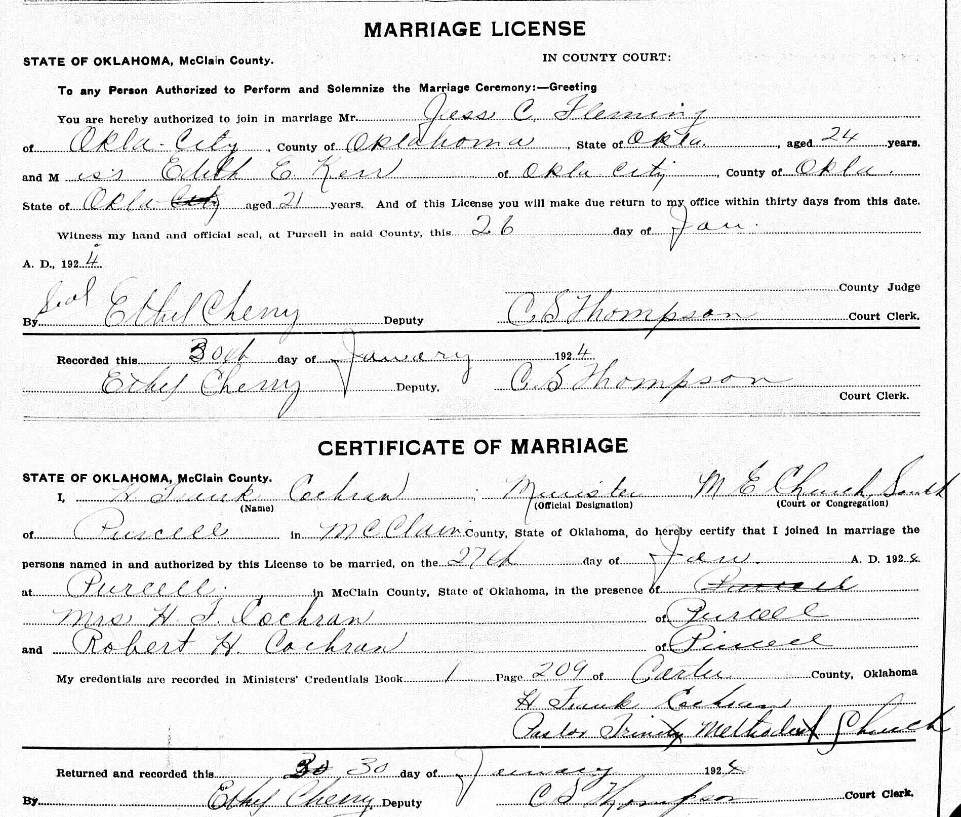 MARRIAGE LICENSE
STATE OF OKLAHOMA, McClain County. IN COUNTY COURT:
To any Person Authorized to Perform and Solemnize the Marriage Ceremony:—Greeting
You are hereby authorized to join in marriage Mr. Jess C. Fleming
of Okla. City, County of Oklahoma, State of Okla., aged 24 years.
and Miss Edith E. Kerr of Okla City, County of Okla.
State of Okla City aged 21 years. And of this License you will make due return to my office within thirty days from this date.
Witness my hand and official seal, at Purcell in said County, this 26 day of Jan.
A. D., 1924.
County Judge
Seal
By Ethel Cherry Deputy C. S Thompson Court Clerk.
Recorded this 30th day of January 1924
Ethel Cherry Deputy. C. S Thompson
Court Clerk.
CERTIFICATE OF MARRIAGE
STATE OF OKLAHOMA, McClain County.
I, H Frank Cochran; Minister M E Church, South
(Name) (Official Designation) (Court or Congregation)
of Purcell in McClain County, State of Oklahoma, do hereby certify that I joined in marriage the
persons named in and authorized by this License to be married, on the 27th day of Jan. A. D. 1924
at Purcell, in McClain County, State of Oklahoma, in the presence of Purcell
Mrs H. F. Cochran of Purcell
and Robert H. Cochran of Purcell
My credentials are recorded in Ministers' Credentials Book 1 Page 209 of Carter County, Oklahoma
H Frank Cochran
Pastor Trinity Methodist Church
Returned and recorded this 30 30 day of January 1924
By Ethel Cherry, Deputy C S Thompson Court Clerk.